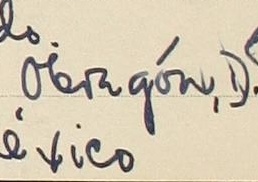 do
Obregón, D.
éxico